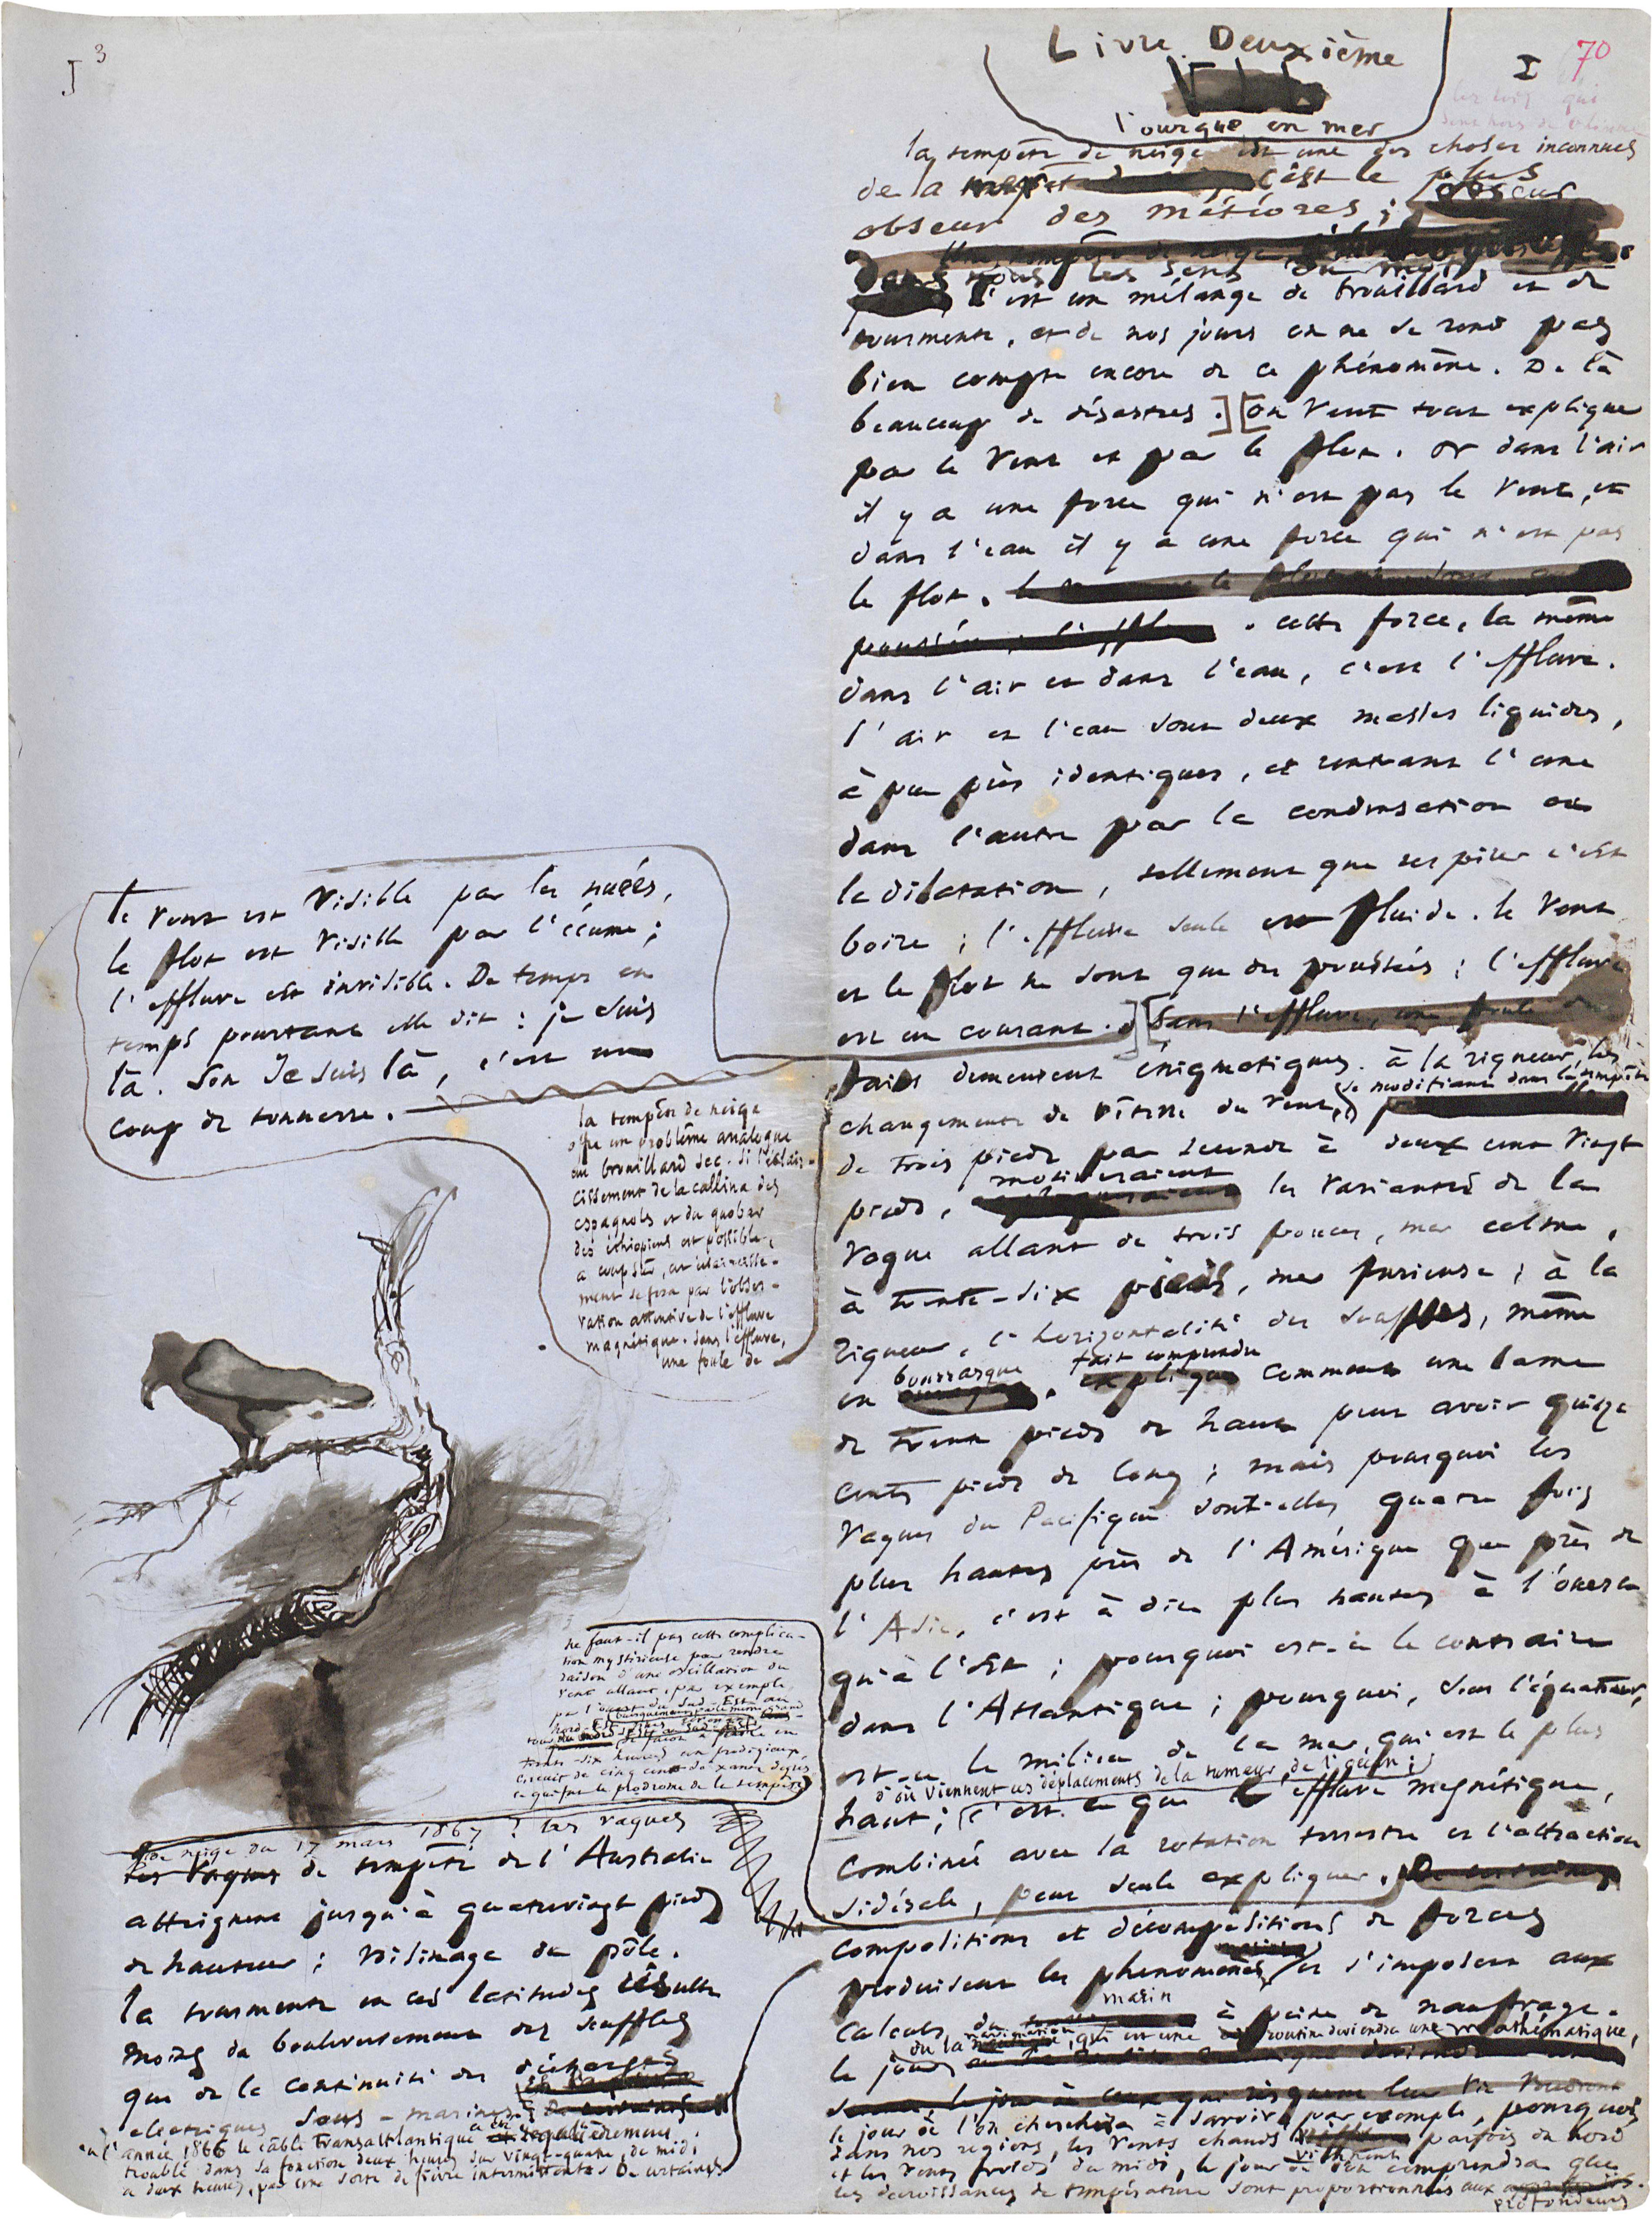 J 3
Livre Deuxième
I 70
l'ourque en mer
la tempête de neige est une des choses inconnues
de la mer. c'est le plus
obscur des météores; obscur
dans tous les sens du mot.
c'est un mélange de brouillard et de
tourmente, et de nos jours on ne se rend pas
bien compte encore de ce phénomène. De là
beaucoup de désastres.] [on veut tout expliquer
par le vent et par le flot. or dans l'air
il y a une force qui n'est pas le vent, et
dans l'eau il y a une force qui n'est pas
le flot.
cette force, la même
dans l'air et dans l'eau, c'est l'effluve.
l'air et l'eau sont deux masses liquides,
à peu près identiques, et rentrant l'une
dans l'autre par la condensation ou
la dilatation, tellement que respirer c'est
boire; l'effluve seule est fluide. le vent
et le flot ne sont que des poussées; l'effluve
est un courant.] [Sans l'effluve, une foule de
le vent est visible par les nuées,
le flot est visible par l'écume;
l'effluve est invisible. De temps en
temps pourtant elle dit: je suis
là. Son Je suis là, c'est un
coup de tonnerre.
la tempête de neige
offre un problème analogue
au brouillard sec. si l'éclair-
cissement de la callina des
espagnols et du quobar
des éthiopiens est possible,
à coup sûr, cet éclaircisse-
ment se fera par l'obser-
vation attentive de l'effluve
magnétique. Sans l'effluve,
une foule de
faits demeurent énigmatiques. à la rigueur, les
changements de vitesse du vent, se modifiant dans la tempête
de trois pieds par seconde à deux cent vingt
pieds, motiveraient les variantes de la
vague allant de trois pouces, mer calme,
à trente-six pieds, mer furieuse; à la
rigueur, l'horizontalité des souffles, même
en bourrasque, fait comprendre comment une lame
de trente pieds de haut peut avoir quinze
cents pieds de long; mais pourquoi les
vagues du Pacifique sont-elles quatre fois
plus hautes près de l'Amérique que près de
l'Asie, c'est à dire plus hautes à l'ouest
qu'à l'est; pourquoi est-ce le contraire
dans l'Atlantique; pourquoi, sous l'équateur,
est-ce le milieu de la mer qui est le plus
haut; d'où viennent ces déplacements de la tumeur de l'océan;
c'est ce que l'effluve magnétique,
combinée avec la rotation terrestre et l'attraction
sidérale, peut seule expliquer.
ne faut-il pas cette complica-
tion mystérieuse pour rendre
raison d'une oscillation du
vent allant, par exemple,
par l'ouest du Sud-Est au
Nord-Est, puis
de façon à faire en
trente-six heures un prodigieux
circuit de cinq cent soixante degrés,
ce qui fut le prodrome de la tempête
de neige du 17 mars 1867? les vagues
de tempête de l'Australie
atteignent jusqu'à quatrevingt pieds
de hauteur; voisinage du pôle.
la tourmente en ces latitudes résulte
moins du bouleversement des souffles
que de la continuité des décharges
électriques sous-marines;
en l'année 1866 le câble transatlantique a été régulièrement
troublé dans sa fonction deux heures sur vingt-quatre, de midi
à deux heures, par une sorte de fièvre intermittente. De certaines
compositions et décompositions de forces
produisent les phénomènes, et s'imposent aux
calculs du marin à peine de naufrage.
le jour où la navigation, qui est une routine, deviendra une mathématique,
le jour où l'on cherchera à savoir, par exemple, pourquoi
dans nos régions, les vents chauds viennent parfois du nord
et les vents froids du midi, le jour où l'on comprendra que
les décroissances de température sont proportionnées aux
profondeurs